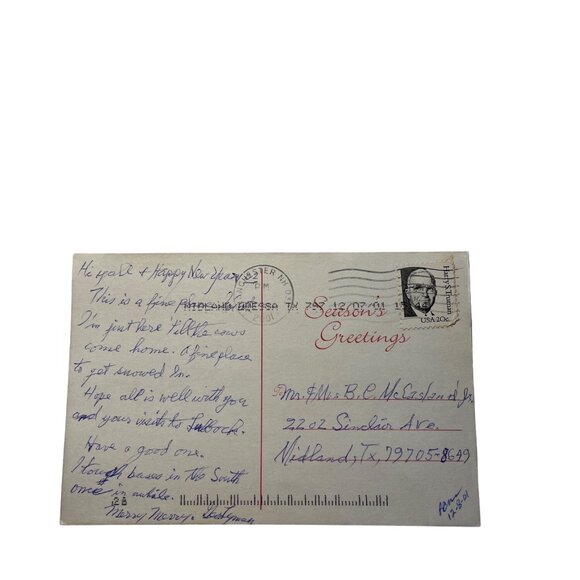 Hi yall & Happy New Year
This is a fine place
I'm just here till the cows
come home. A fine place
to get snowed in.
Hope all is well with you
and your visits to Lubbock.
Have a good one.
I touch bases in the South
once in awhile.
Merry Merry.
MANCHESTER NH
PM
2001
MIDLAND/ODESSA TX 797 12/07/01
Harry S. Truman
USA 20c
Season's
Greetings
Mr. & Mrs. B. C. McCasland Jr.
2202 Sinclair Ave.
Midland, Tx, 79705-8649
12-8-01